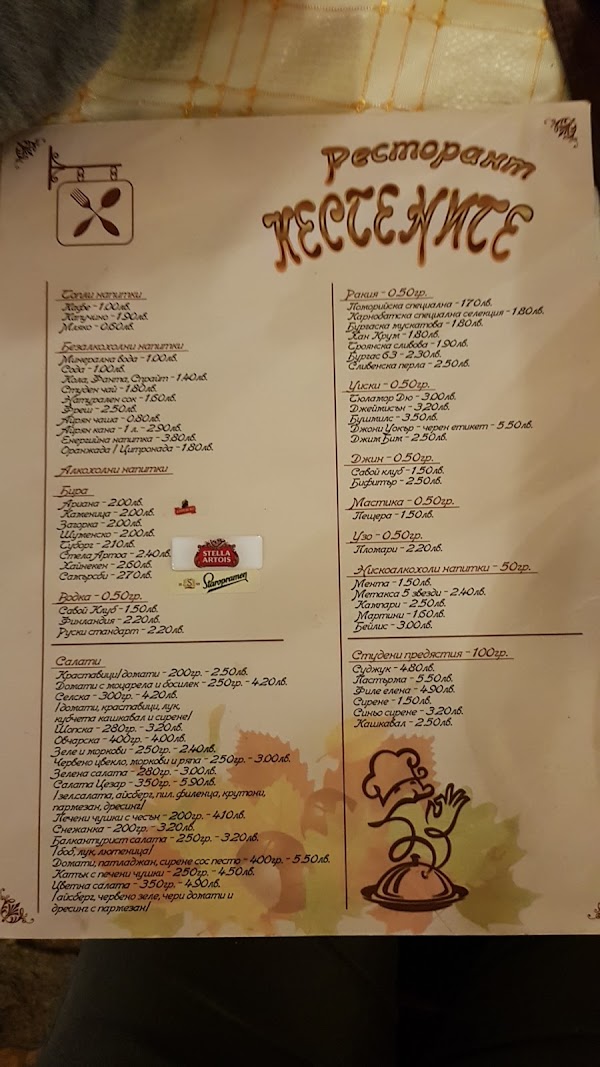 Ресторант
КЕСТЕНИТЕ
Топли напитки
Кафе - 1.00лв.
Капучино - 1.90лв.
Мляко - 0.60лв.
Безалкохолни напитки
Минерална вода - 1.00лв.
Сода - 1.00лв.
Кола, Фанта, Спрайт - 1.40лв.
Студен чай - 1.80лв.
Натурален сок - 1.60лв.
Фреш - 2.50лв.
Айрян чаша - 0.80лв.
Айрян кана - 1 л. - 2.90лв.
Енергийна напитка - 3.80лв.
Оранжада / Цитронада - 1.80лв.
Алкохолни напитки
Бира
Ариана - 2.00лв.
Каменица - 2.00лв.
Загорка - 2.00лв.
Шуменско - 2.00лв.
Туборг - 2.10лв.
Стела Артоа - 2.40лв.
Хайнекен - 2.60лв.
Самърсби - 2.70лв.
STELLA
ARTOIS
Staropramen
Водка - 0.50гр.
Савой Клуб - 1.50лв.
Финландия - 2.20лв.
Руски стандарт - 2.20лв.
Салати
Краставици/домати - 200гр. - 2.50лв.
Домати с моцарела и босилек - 250гр. - 4.20лв.
Селска - 300гр. - 4.20лв.
/домати, краставици, лук,
кубчета кашкавал и сирене/
Шопска - 280гр. - 3.20лв.
Овчарска - 400гр. - 4.00лв.
Зеле и моркови - 250гр. - 2.40лв.
Червено цвекло, моркови и ряпа - 250гр. - 3.00лв.
Зелена салата - 280гр. - 3.00лв.
Салата Цезар - 350гр. - 5.90лв.
/зел.салата, айсберг, пил. филенца, крутони,
пармезан, дресинг/
Печени чушки с чесън - 200гр. - 4.10лв.
Снежанка - 200гр. - 3.20лв.
Балкантурист салата - 250гр. - 3.20лв.
/боб, лук, лютеница/
Домати, патладжан, сирене сос песто - 400гр. - 5.50лв.
Катък с печени чушки - 250гр. - 4.50лв.
Цветна салата - 350гр. - 4.90лв.
/айсберг, червено зеле, чери домати и
дресинг с пармезан/
Ракия - 0.50гр.
Поморийска специална - 1.70лв.
Карнобатска специална селекция - 1.80лв.
Бургаска мускатова - 1.80лв.
Хан Крум - 1.80лв.
Троянска сливова - 1.90лв.
Бургас 63 - 2.30лв.
Сливенска перла - 2.50лв.
Уиски - 0.50гр.
Тюламор Дю - 3.00лв.
Джеймисън - 3.20лв.
Бушмилс - 3.50лв.
Джони Уокър - черен етикет - 5.50лв.
Джим Бим - 2.50лв.
Джин - 0.50гр.
Савой клуб - 1.50лв.
Бифитър - 2.50лв.
Мастика - 0.50гр.
Пещера - 1.50лв.
Узо - 0.50гр.
Пломари - 2.20лв.
Нискоалкохоли напитки - 50гр.
Мента - 1.50лв.
Метакса 5 звезди - 2.40лв.
Кампари - 2.50лв.
Мартини - 1.60лв.
Бейлис - 3.00лв.
Студени предястия - 100гр.
Суджук - 4.80лв.
Пастърма - 5.50лв.
Филе елена - 4.90лв.
Сирене - 1.50лв.
Синьо сирене - 3.20лв.
Кашкавал - 2.50лв.